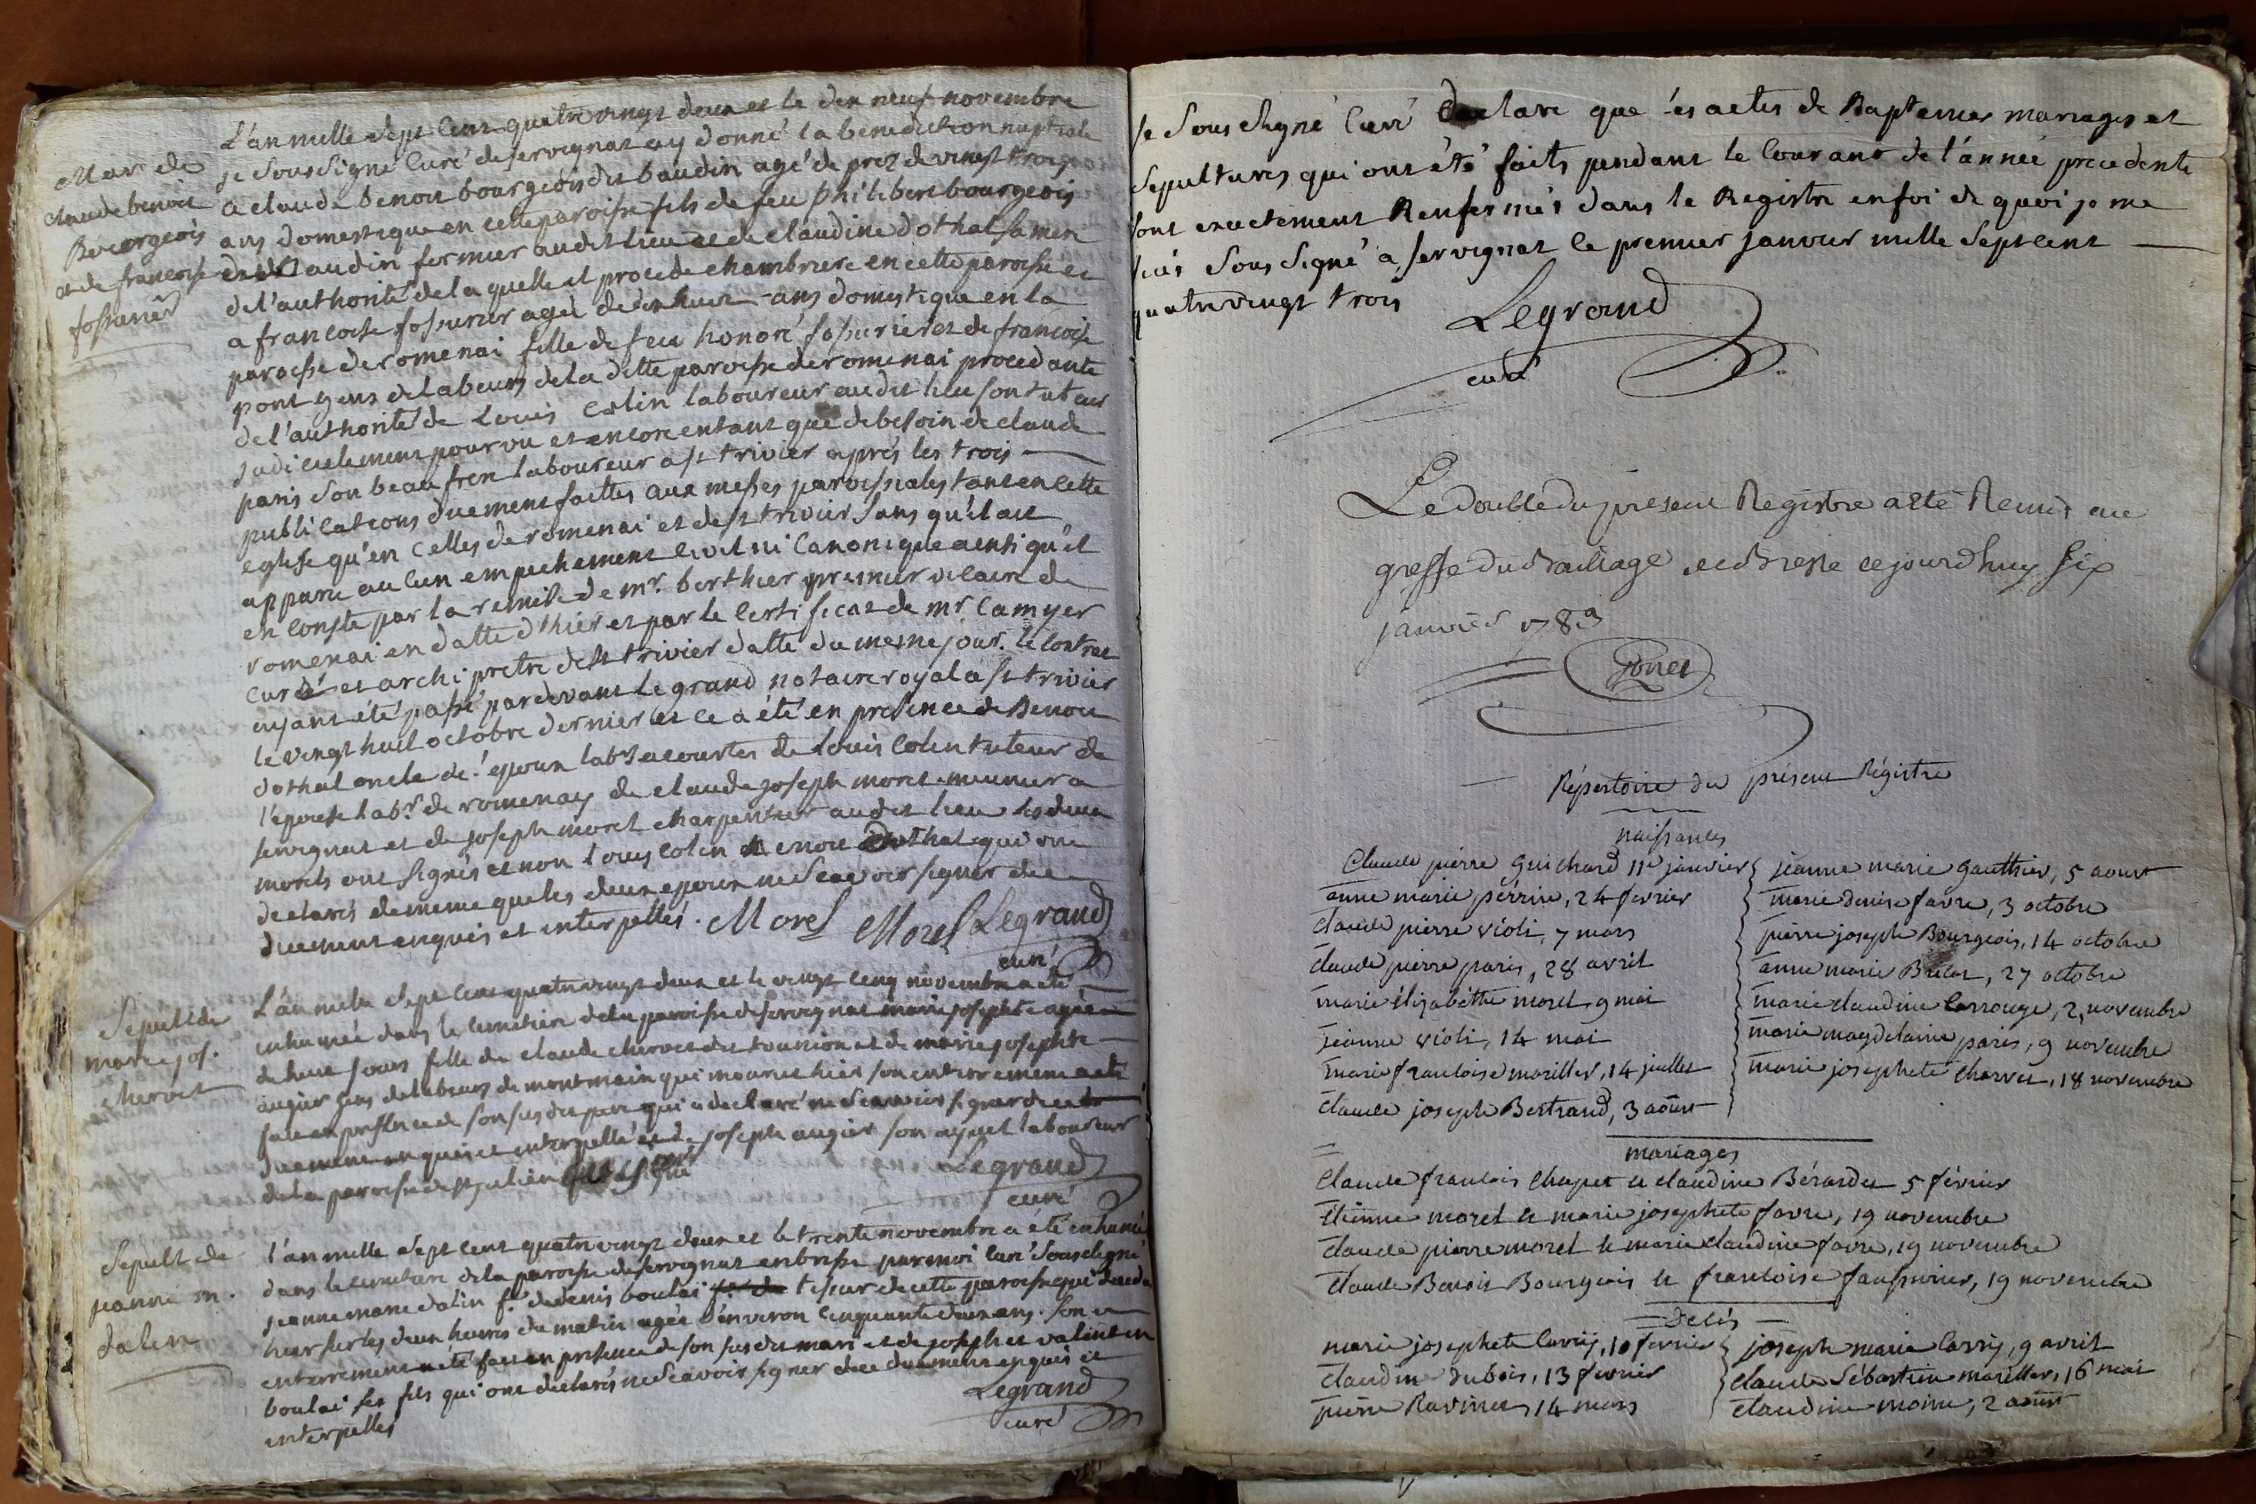 Mar de
claude benoit
Bourgeois
et de francoise
fossurier
L'an mille sept cent quatre vingt deux et le dix neuf novembre
je soussigné curé de servignat ay donné la benediction nuptiale
a claude benoit bourgeois dit baudin agé de prez de vingt trois
ans domestique en cette paroisse fils de feu philibert bourgeois
dit baudin fermier audit lieu et de claudine dothal sa mere
de l'authorité de laquelle il procede chambriere en cette paroisse et
a francoise fossurier agée de dix huit ans domestique en la
paroisse de romenai fille de feu honoré fossurier et de francoise
pont gens de labeurs de la ditte paroisse de romenai procedante
de l'authorité de Louis Colin laboureur audit lieu son tuteur
judicielement pourvu et encore entant que de besoin de claude
paris son beau frere laboureur a st trivier après les trois
publications duement faittes aux messes paroissiales tant en cette
eglise qu'en celles de romenai et de st trivier sans qu'il ait
apparu aucun empechement civil ni canonique ainsi qu'il
en conste par la remise de mr. berthier premier vicaire de
romenai en datte d'hier et par le certificat de mr camyer
curé et archipretre de st trivier datté du meme jour. le contrat
ayant été passé pardevant Legrand notaire royal a st trivier
le vingt huit octobre dernier et ce a été en presence de Benoit
dothal oncle de l'epoux labr a courtes de Louis Colin tuteur de
l'epouse labr. de romenay de claude joseph morel meunier a
servignat et de joseph morel charpentier audit lieu les deux
morels ont signés et non Louis Colin et benoit dothal qui ont
declarés de meme que les deux epoux ne scavoir signer de ce
duement enquis et interpellés. Morel Morel Legrand
curé
Sepult de
marie jos.
chervet
L'an mille sept cent quatre vingt deux et le vingt cinq novembre a été
inhumée dans le cimetiere de la paroisse de servignat marie josephte agée
de huit jours fille de claude chervet dit tournion et de marie josephte
augier gens de labeurs de montmain qui mourut hier son enterrement a été
fait en presence de son susdit pere qui a declaré ne scavoir signer de ce
duement enquis et interpellé et de joseph augier son ayeul laboureur
de la paroisse de st julien qui a signé
Legrand
curé
Sepult de
jeanne m.
dalin
l'an mille sept cent quatre vingt deux et le trente novembre a été inhumée
dans le cimetiere de la paroisse de servignat en bresse par moi curé soussigné
jeanne marie dalin f. de denis boulai tissier de cette paroisse qui deceda
hier sur les deux heures du matin agée d'environ cinquante deux ans. son
enterrement a été fait en presence de son susdit mari et de joseph et valentin
boulai ses fils qui ont declarés ne scavoir signer de ce duement enquis et
interpellés
Legrand
curé
Je sous signé Curé declare que les actes de Baptemes mariages et
sepultures qui ont été faits pendant le Courant de l'année precedente
sont exactement Renfermés dans le Registre en foi de quoi je me
suis sous signé a servignat le premier janvier mille sept cent
quatre vingt trois
Legrand
curé
Le double du present Registre a été Remis au
greffe du Bailliage de Bresse cejourdhuy six
janvier 1783
Gonet
Répertoire du présent Régistre
naissances
Claude pierre Guichard 11e janvier
anne marie perrin, 24 fevrier
Claude pierre violi, 7 mars
Claude pierre paris, 28 avril
marie élizabethe morel 9 mai
jeanne violi, 14 mai
marie francoise moriller, 14 juillet
Claude joseph Bertrand, 3 aoust
jeanne marie gauthier, 5 aoust
marie denise favre, 3 octobre
pierre joseph Bourgeois, 14 octobre
anne marie Bulot, 27 octobre
marie claudine Carrouge, 2 novembre
marie magdelaine paris, 9 novembre
marie josephete chervet, 18 novembre
mariages
Claude francois Chapet et claudine Bérardet 5 février
étienne morel et marie josephete favre, 19 novembre
claude pierre morel et marie claudine favre, 19 novembre
Claude Benoit Bourgeois et francoise faussurier, 19 novembre
Décès
marie josephete Carrij, 10 fevrier
Claudine dubois, 13 fevrier
pierre Ravinet, 14 mars
joseph marie Carrij, 9 avril
claude Sébastien moriller, 16 mai
Claudine moine, 2 aoust